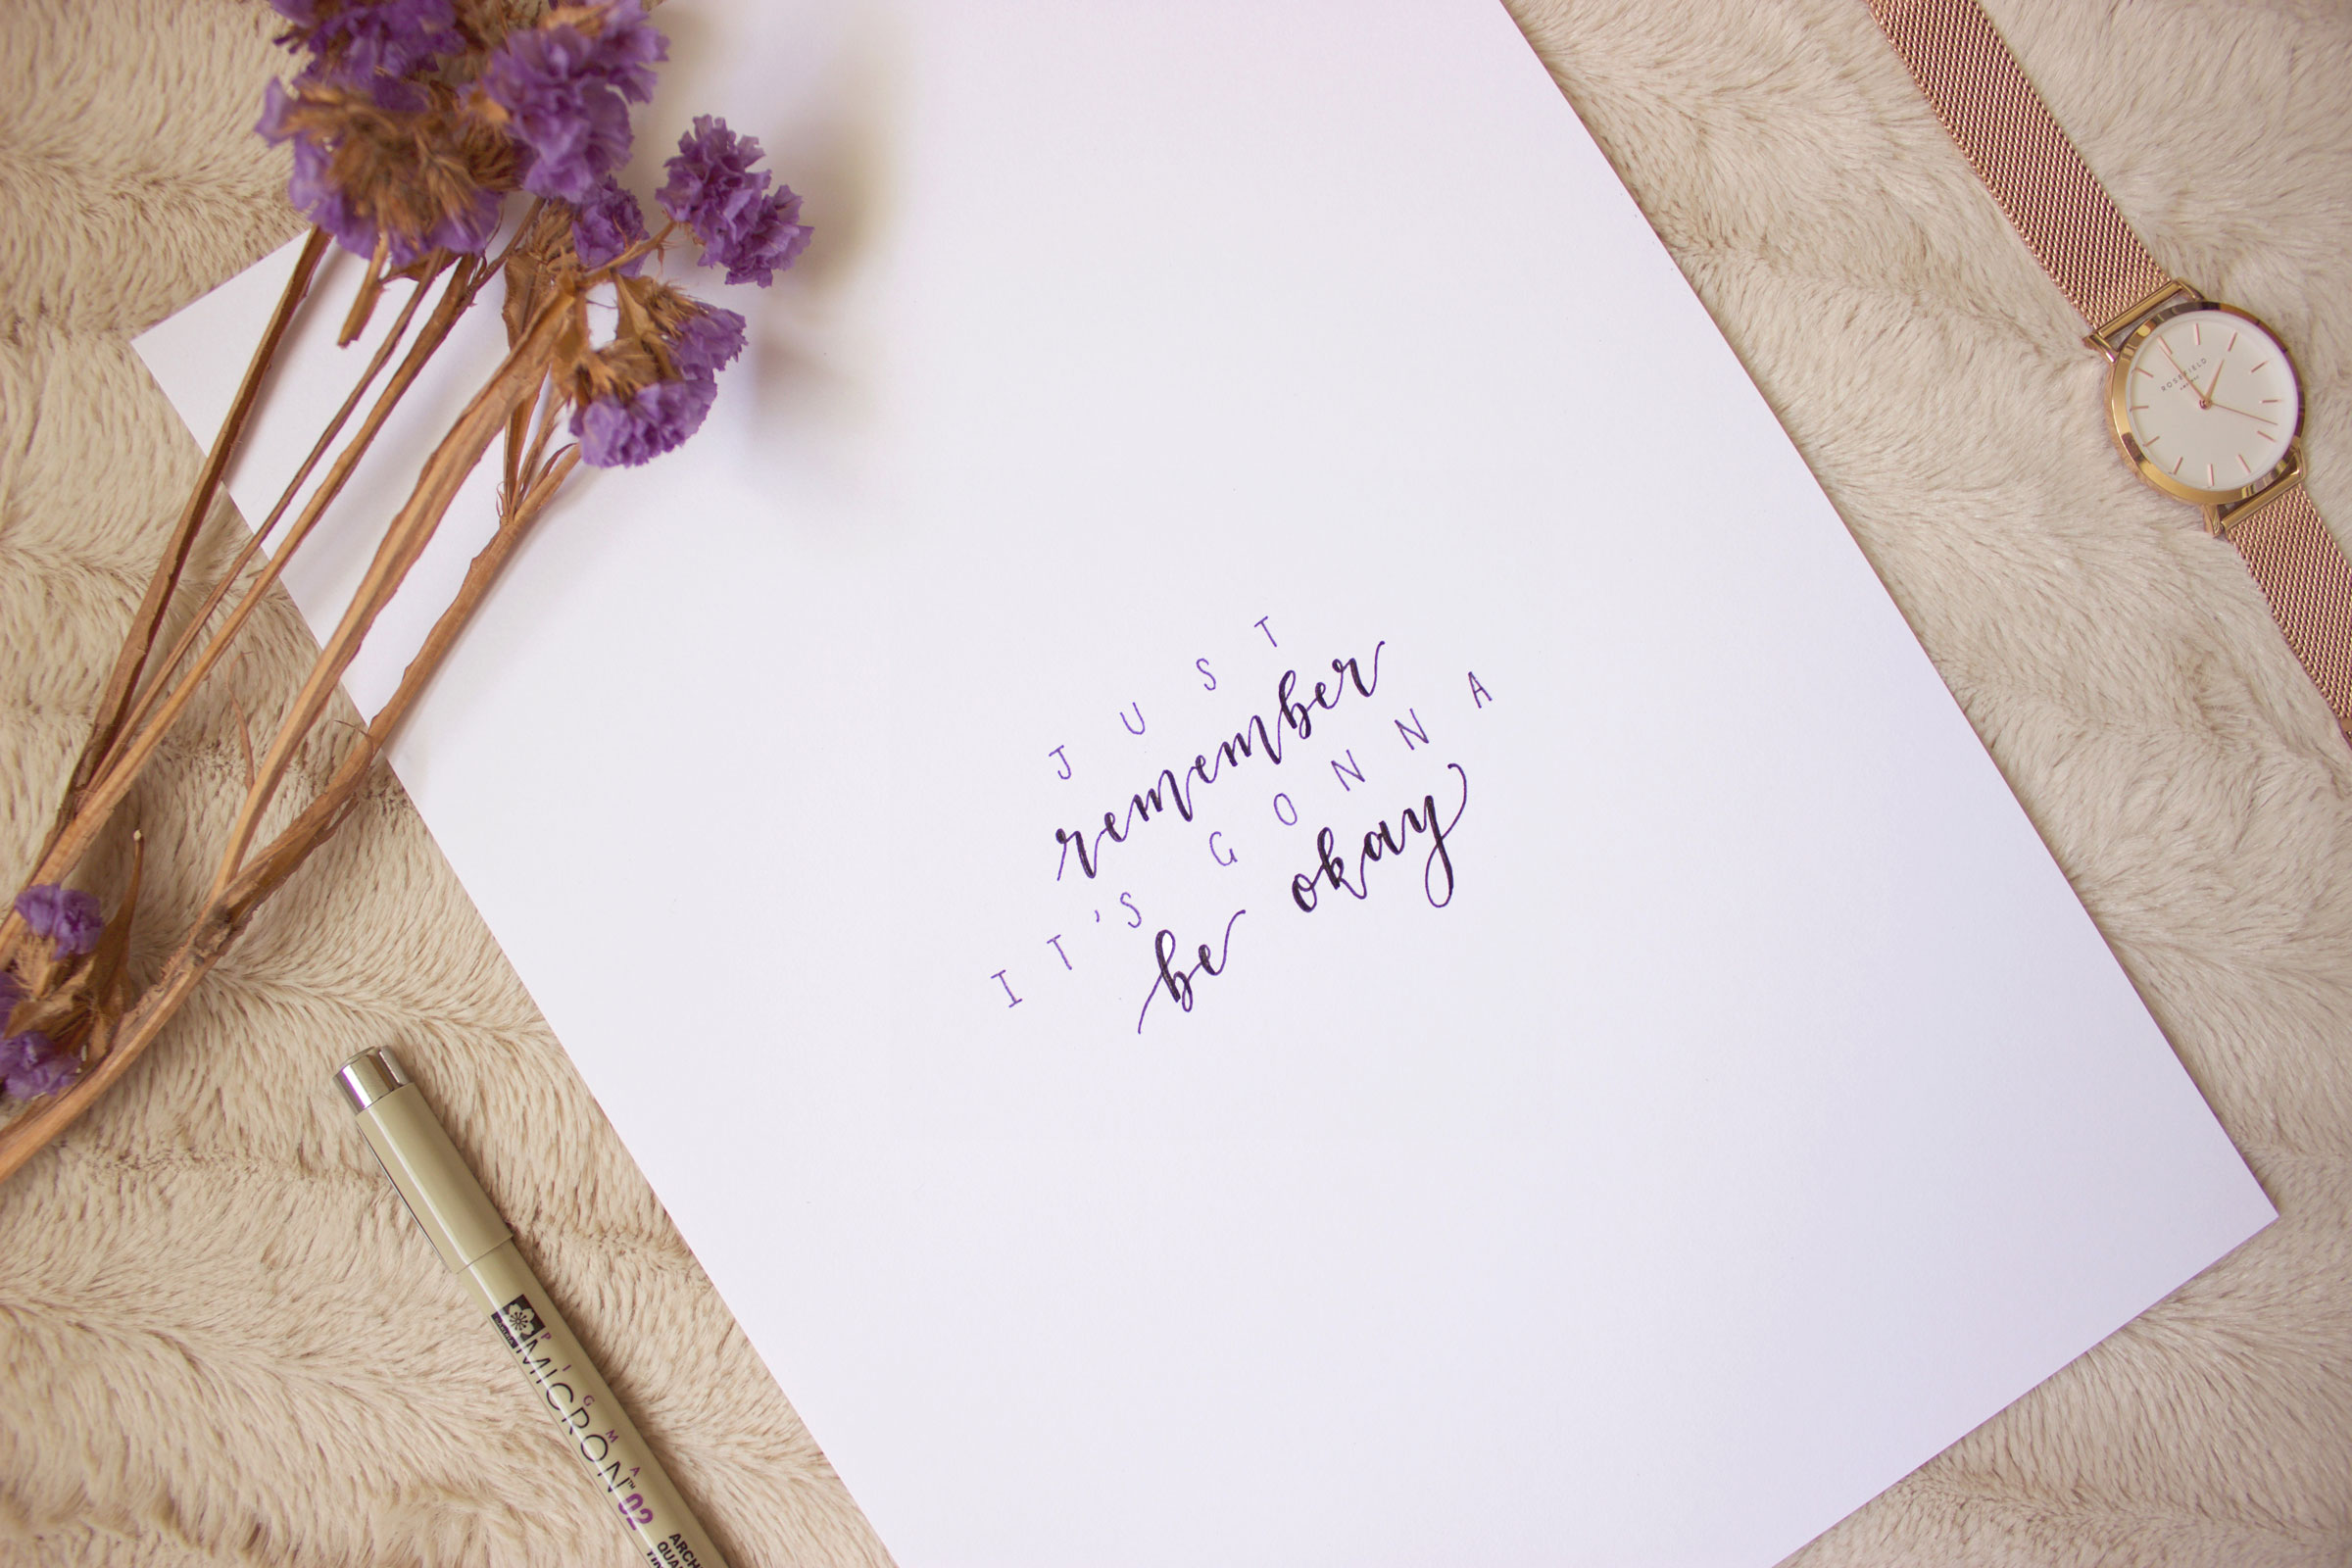 JUST
remember
IT'S GONNA
be okay
ROSEFIELD
PIGMA
MICRON™ 02